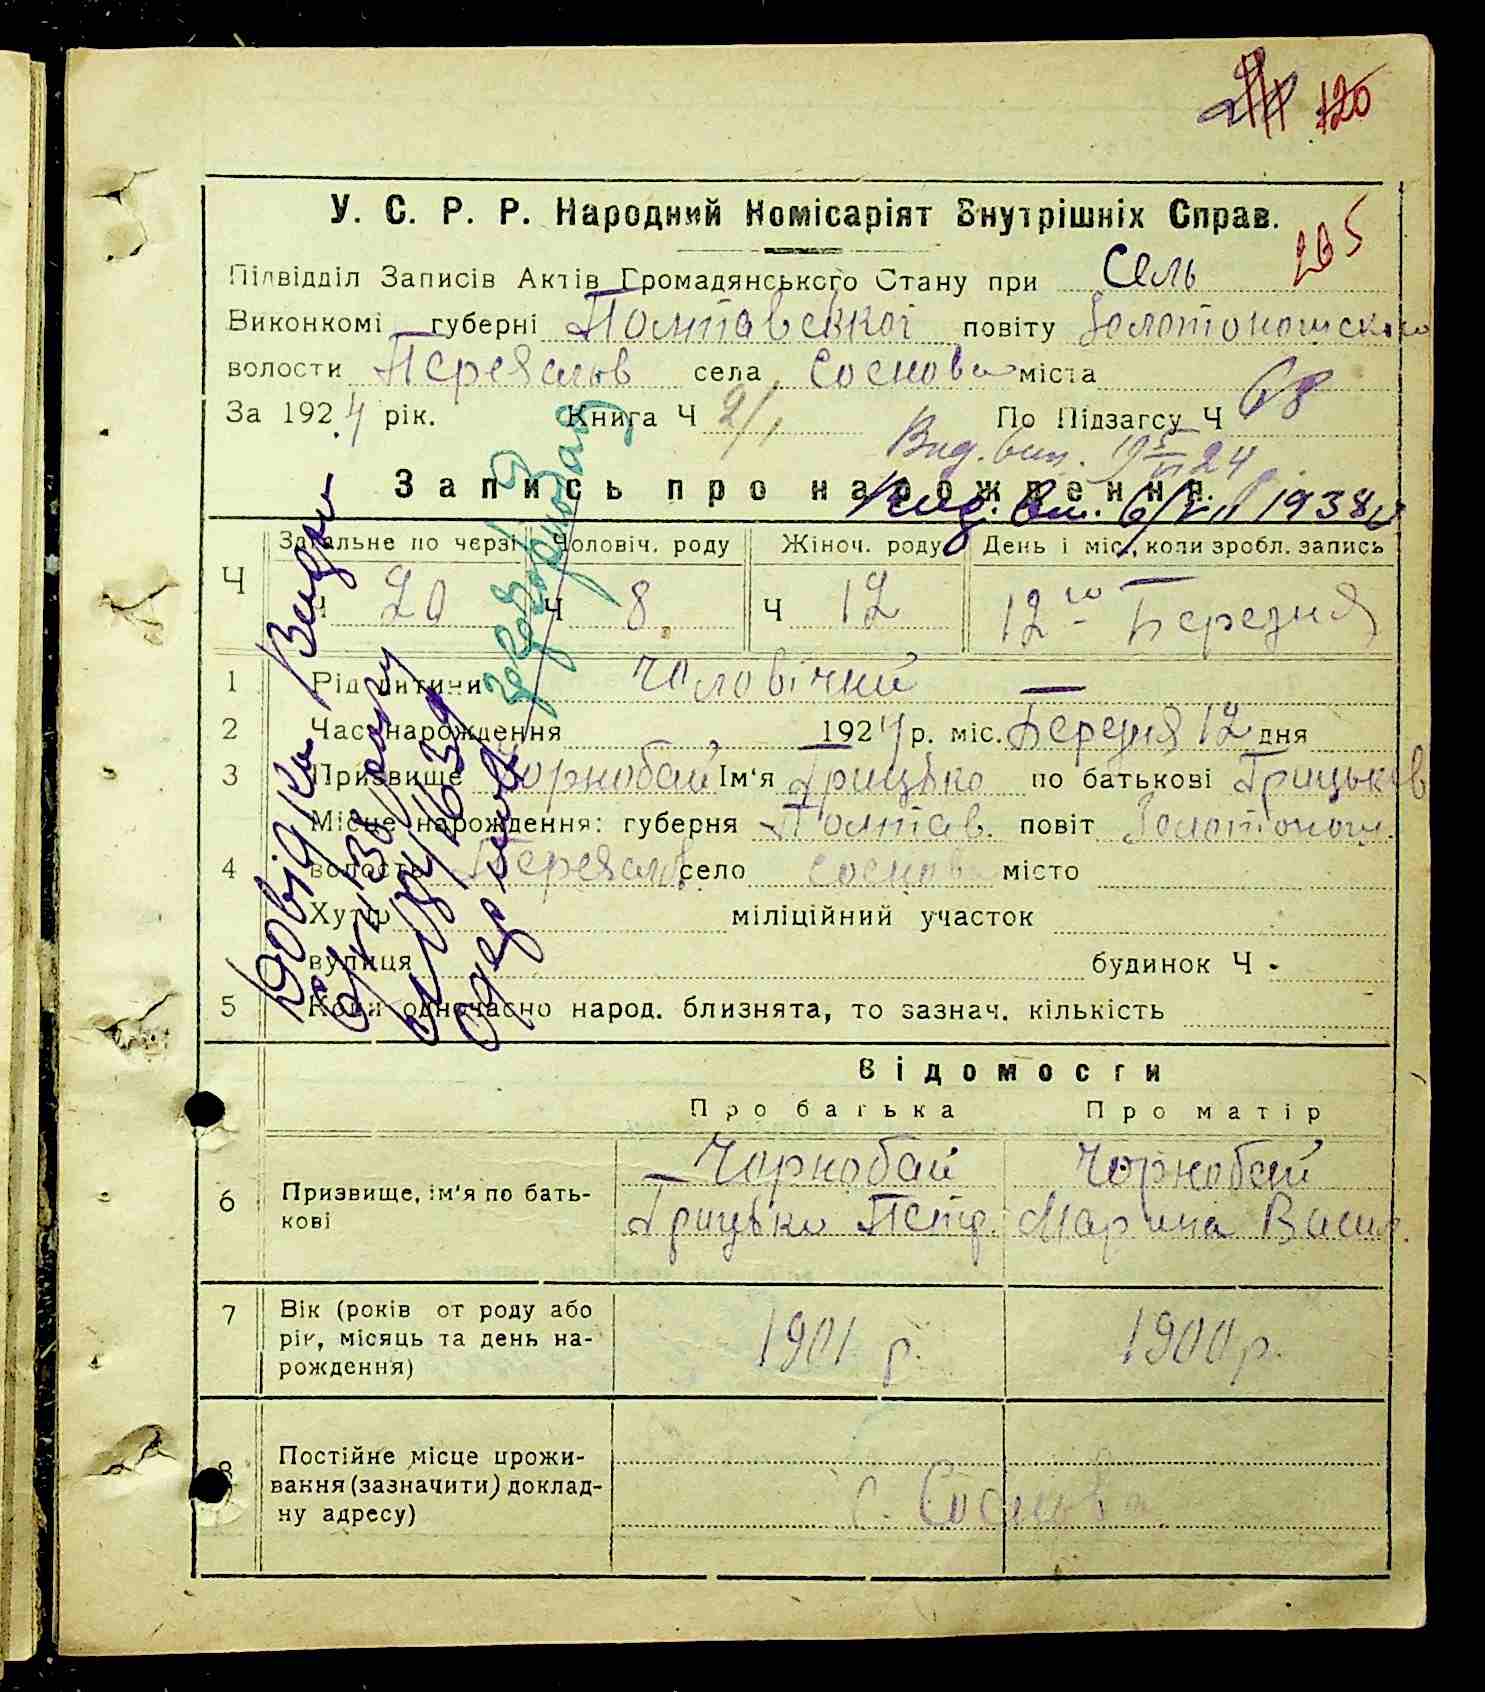 120
У. С. Р. Р. Народний Комісаріят Внутрішніх Справ.
205
Підвідділ Записів Актів Громадянського Стану при Сель
Виконкомі губерні Полтавської повіту Золотоношско
волости Переяслів села Соснова міста
За 1924 рік. Книга Ч 2/1 По Підзагсу Ч 68
Вид. вип. 24
Запись про народження.
Вид. вип. 6/VII 1938
Загальне по черзі Чоловіч. роду Жіноч. роду День і міс., коли зробл. запись
Ч Ч 20 Ч 8 Ч 12 12го Березня
1 Рід дитини Чоловічий
2 Час нарождення 1924 р. міс. Березня 12 дня
3 Призвище Чорнобай Ім'я Грицько по батькові Грицьков
Місце нарождення: губерня Полтав. повіт Золотонош.
4 волость Переяслів село Соснова місто
Хутір міліційний участок
вулиця будинок Ч
5 Коли одночасно народ. близнята, то зазнач. кількість
Довідку Видан
Відомости
Про батька Про матір
Чорнобай Чорнобай
6 Призвище, ім'я по бать-
кові Грицько Петр. Марина Васил.
7 Вік (років от роду або
рік, місяць та день на-
рождення) 1901 р. 1900 р.
8 Постійне місце прожи-
вання (зазначити) доклад-
ну адресу) с. Соснова